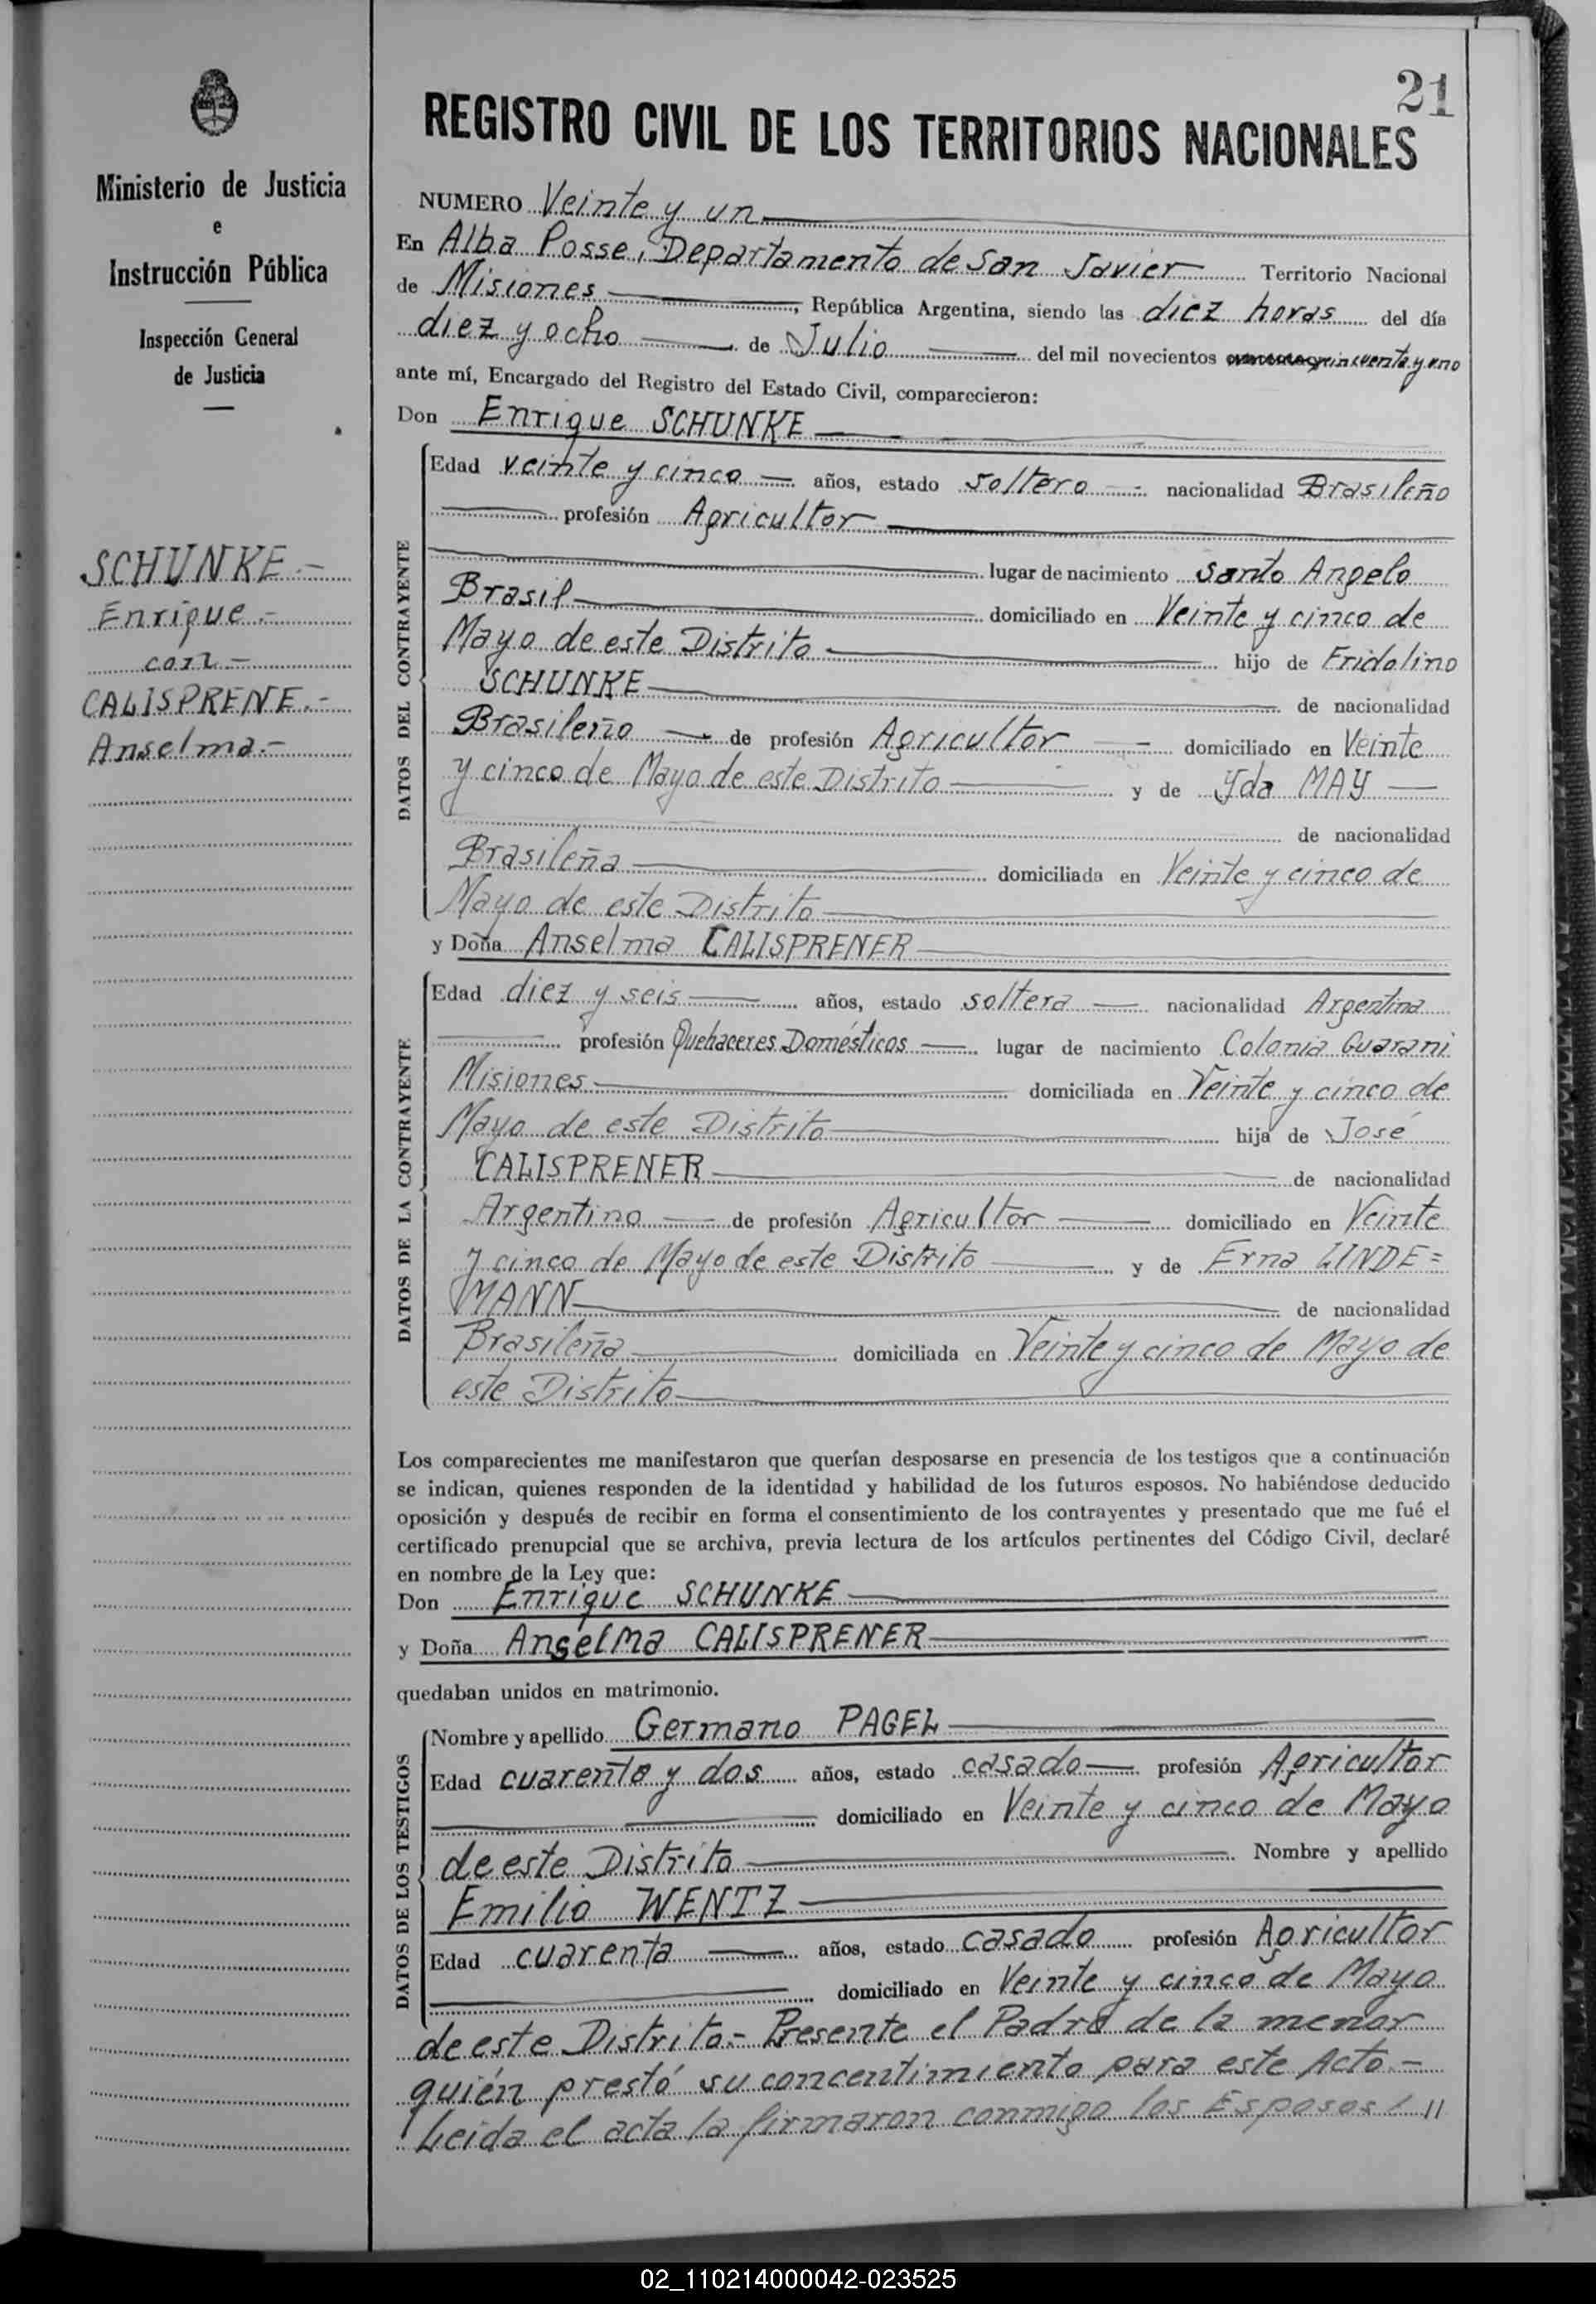 21
Ministerio de Justicia
e
Instrucción Pública
Inspección General
de Justicia
SCHUNKE.-
Enrique.-
con-
CALISPRENE.-
Anselma.-
REGISTRO CIVIL DE LOS TERRITORIOS NACIONALES
NUMERO Veinte y un
En Alba Posse, Departamento de San Javier Territorio Nacional
de Misiones, República Argentina, siendo las diez horas del día
diez y ocho de Julio del mil novecientos cincuenta y uno
ante mí, Encargado del Registro del Estado Civil, comparecieron:
Don Enrique SCHUNKE
DATOS DEL CONTRAYENTE
Edad veinte y cinco años, estado soltero nacionalidad Brasileño
profesión Agricultor
lugar de nacimiento Santo Angelo
Brasil domiciliado en Veinte y cinco de
Mayo de este Distrito hijo de Fridolino
SCHUNKE de nacionalidad
Brasileño de profesión Agricultor domiciliado en Veinte
y cinco de Mayo de este Distrito y de Yda MAY
de nacionalidad
Brasileña domiciliada en Veinte y cinco de
Mayo de este Distrito
y Doña Anselma CALISPRENER
DATOS DE LA CONTRAYENTE
Edad diez y seis años, estado soltera nacionalidad Argentina
profesión Quehaceres Domésticos lugar de nacimiento Colonia Guarani
Misiones domiciliada en Veinte y cinco de
Mayo de este Distrito hija de José
CALISPRENER de nacionalidad
Argentino de profesión Agricultor domiciliado en Veinte
y cinco de Mayo de este Distrito y de Erna LINDE=
MANN de nacionalidad
Brasileña domiciliada en Veinte y cinco de Mayo de
este Distrito
Los comparecientes me manifestaron que querían desposarse en presencia de los testigos que a continuación
se indican, quienes responden de la identidad y habilidad de los futuros esposos. No habiéndose deducido
oposición y después de recibir en forma el consentimiento de los contrayentes y presentado que me fué el
certificado prenupcial que se archiva, previa lectura de los artículos pertinentes del Código Civil, declaré
en nombre de la Ley que:
Don Enrique SCHUNKE
y Doña Anselma CALISPRENER
quedaban unidos en matrimonio.
DATOS DE LOS TESTIGOS
Nombre y apellido Germano PAGEL
Edad cuarenta y dos años, estado casado profesión Agricultor
domiciliado en Veinte y cinco de Mayo
de este Distrito Nombre y apellido
Emilio WENTZ
Edad cuarenta años, estado casado profesión Agricultor
domiciliado en Veinte y cinco de Mayo
de este Distrito.- Presente el Padre de la menor
quién prestó su concentimiento para este Acto.-
Leida el acta la firmaron conmigo los Esposos / //
02_110214000042-023525